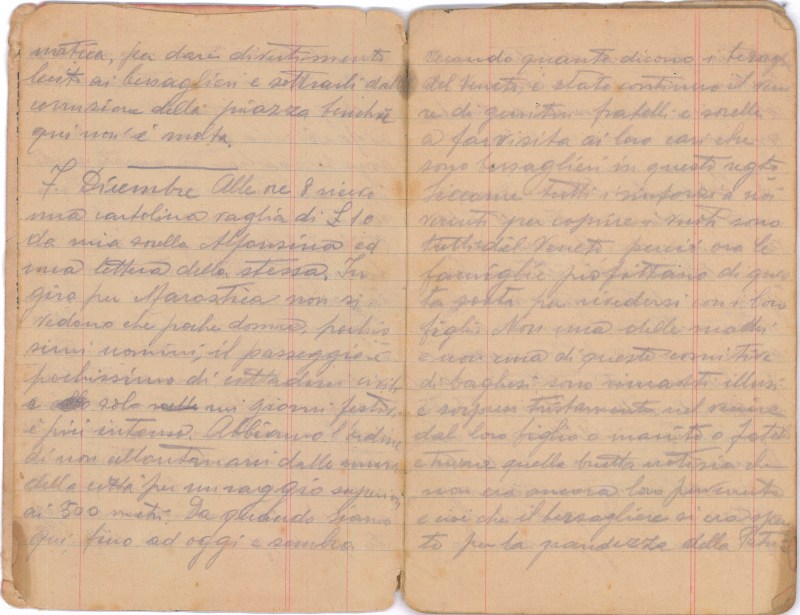 mstica, per dare divertimento
lecito ai bersaglieri e sottrarli dalla
corruzione della piazza benchè
qui non v'è molta.
7. Dicembre Alle ore 8 ricevo
una cartolina vaglia di £ 10
da mia sorella Alfonsina ed
una lettera della stessa. In
giro per Marostica non si
vedono che poche donne, pochis
simi uomini, il passeggio è
pochissimo di cittadini civili
e solo nei giorni festivi
è più intenso. Abbiamo l'ordine
di non allontanarci dalle mura
della città per un raggio superiore
ai 500 metri. Da quando siamo
qui, fino ad oggi e sembra
secondo quanto dicono i bersagl
del Veneto, è stato continuo il veni
re di genitori fratelli e sorelle
a far visita ai loro cari che
sono bersaglieri in questo regto
Siccome tutti i rinforzi a noi
venuti per coprire i vuoti sono
tutti del Veneto perciò ora le
famiglie profittano di que
sta sosta per rivedersi con i loro
figli. Non una delle madri
e non una di queste comitive
di borghesi sono rimasti illusi
e sorpresi tristamente nel venire
dal loro figlio o marito o fratel
e trovare quella brutta notizia che
non era ancora loro pervenuta
e cioè che il bersagliere si era spen
to per la grandezza della Patria